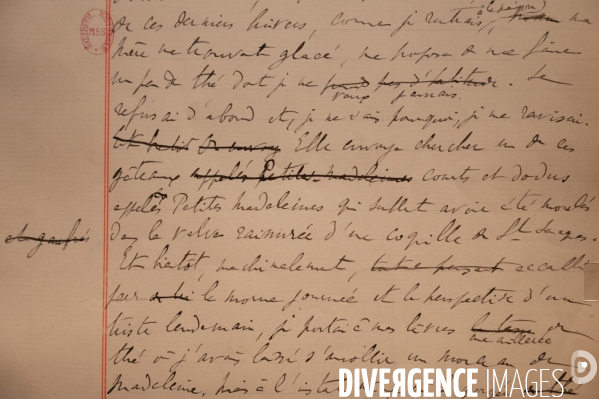 de ces derniers hivers, comme je rentrais à la maison, ma
mère me trouvant glacé, me proposa de me faire
un peu de thé dont je ne prends pas d'habitude. Je
prenais jamais.
refusai d'abord et, je ne sais pourquoi, je me ravisai.
Elle envoya chercher un de ces
gâteaux appelés Petites madeleines courts et dodus
appelés Petites madeleines qui semblent avoir été moulés
et gaufrés
dans la valve rainurée d'une coquille de St Jacques.
Et bientôt, machinalement, accablé
par la morne journée et la perspective d'un
triste lendemain, je portai à mes lèvres
une cuillerée de
thé où j'avais laissé s'amollir un morceau de
madeleine, mais à l'instant
DIVERGENCE IMAGES D